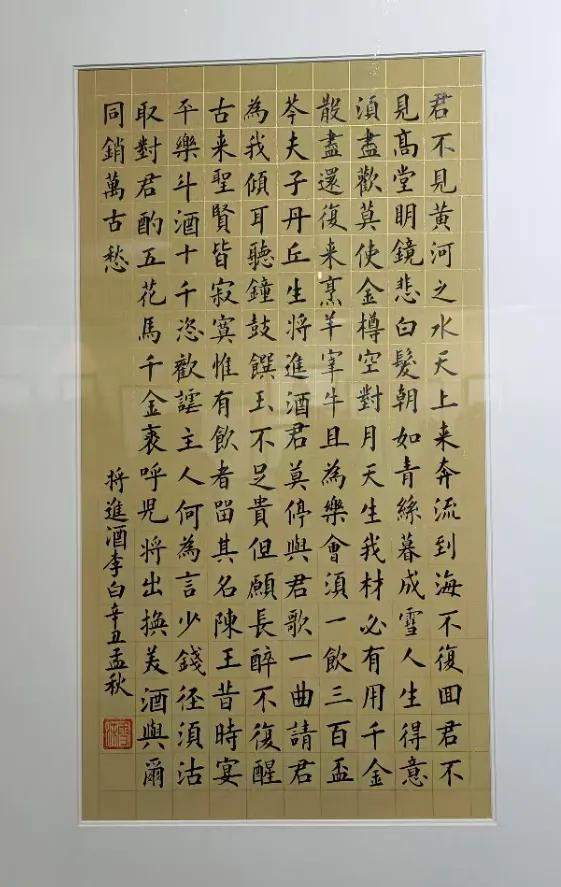 君不見黄河之水天上来奔流到海不復回君不
見高堂明鏡悲白髮朝如青絲暮成雪人生得意
須盡歡莫使金樽空對月天生我材必有用千金
散盡還復来烹羊宰牛且為樂會須一飲三百盃
岑夫子丹丘生将進酒君莫停與君歌一曲請君
為我傾耳聽鐘鼓饌玉不足貴但願長醉不復醒
古来聖賢皆寂寞惟有飲者留其名陳王昔時宴
平樂斗酒十千恣歡謔主人何為言少錢径須沽
取對君酌五花馬千金裘呼児将出換美酒與爾
同銷萬古愁
将進酒李白辛丑孟秋